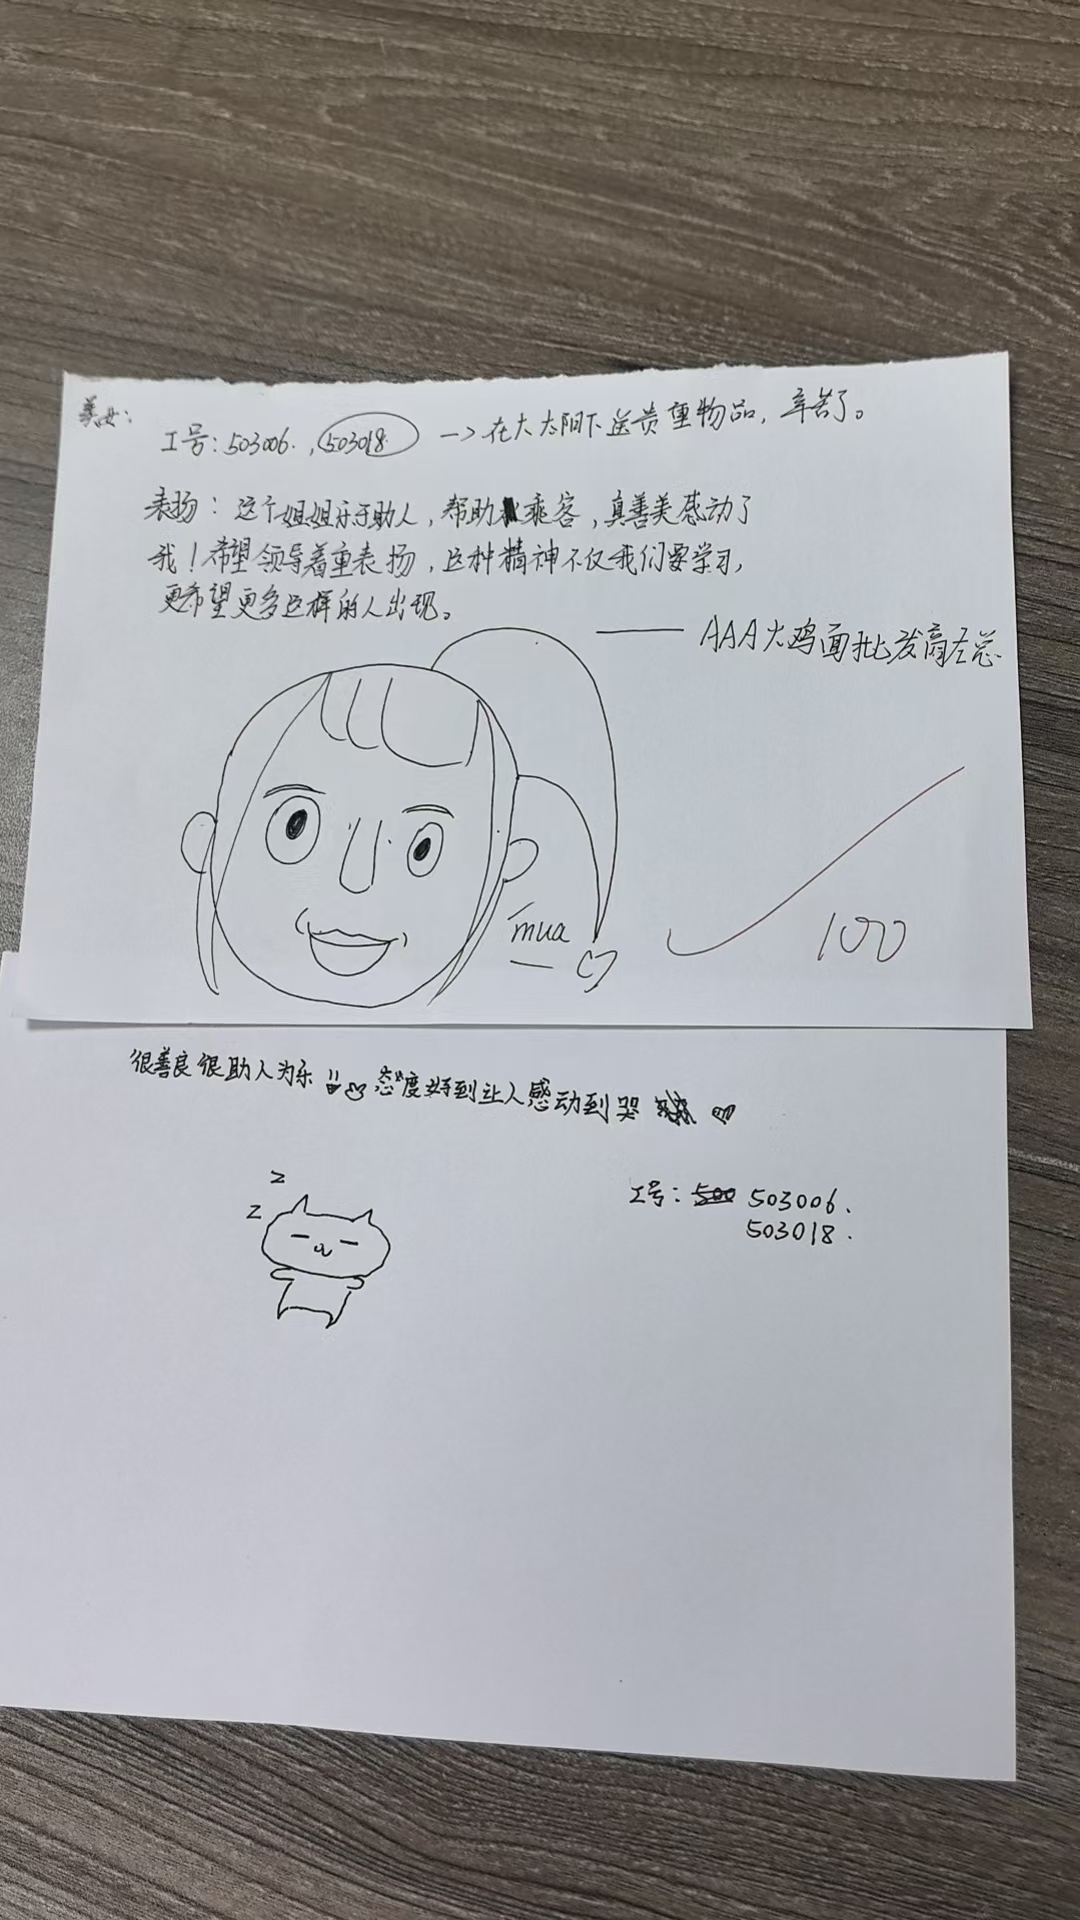 美女：
工号：503006.，503018. —> 在大太阳下送贵重物品，辛苦了。
表扬：这个姐姐乐于助人，帮助乘客，真善美感动了
我！希望领导着重表扬，这种精神不仅我们要学习，
更希望更多这样的人出现。
—— AAA火鸡面批发商左总
mua
100
很善良很助人为乐 态度好到让人感动到哭
z
z
工号：503006.
503018.